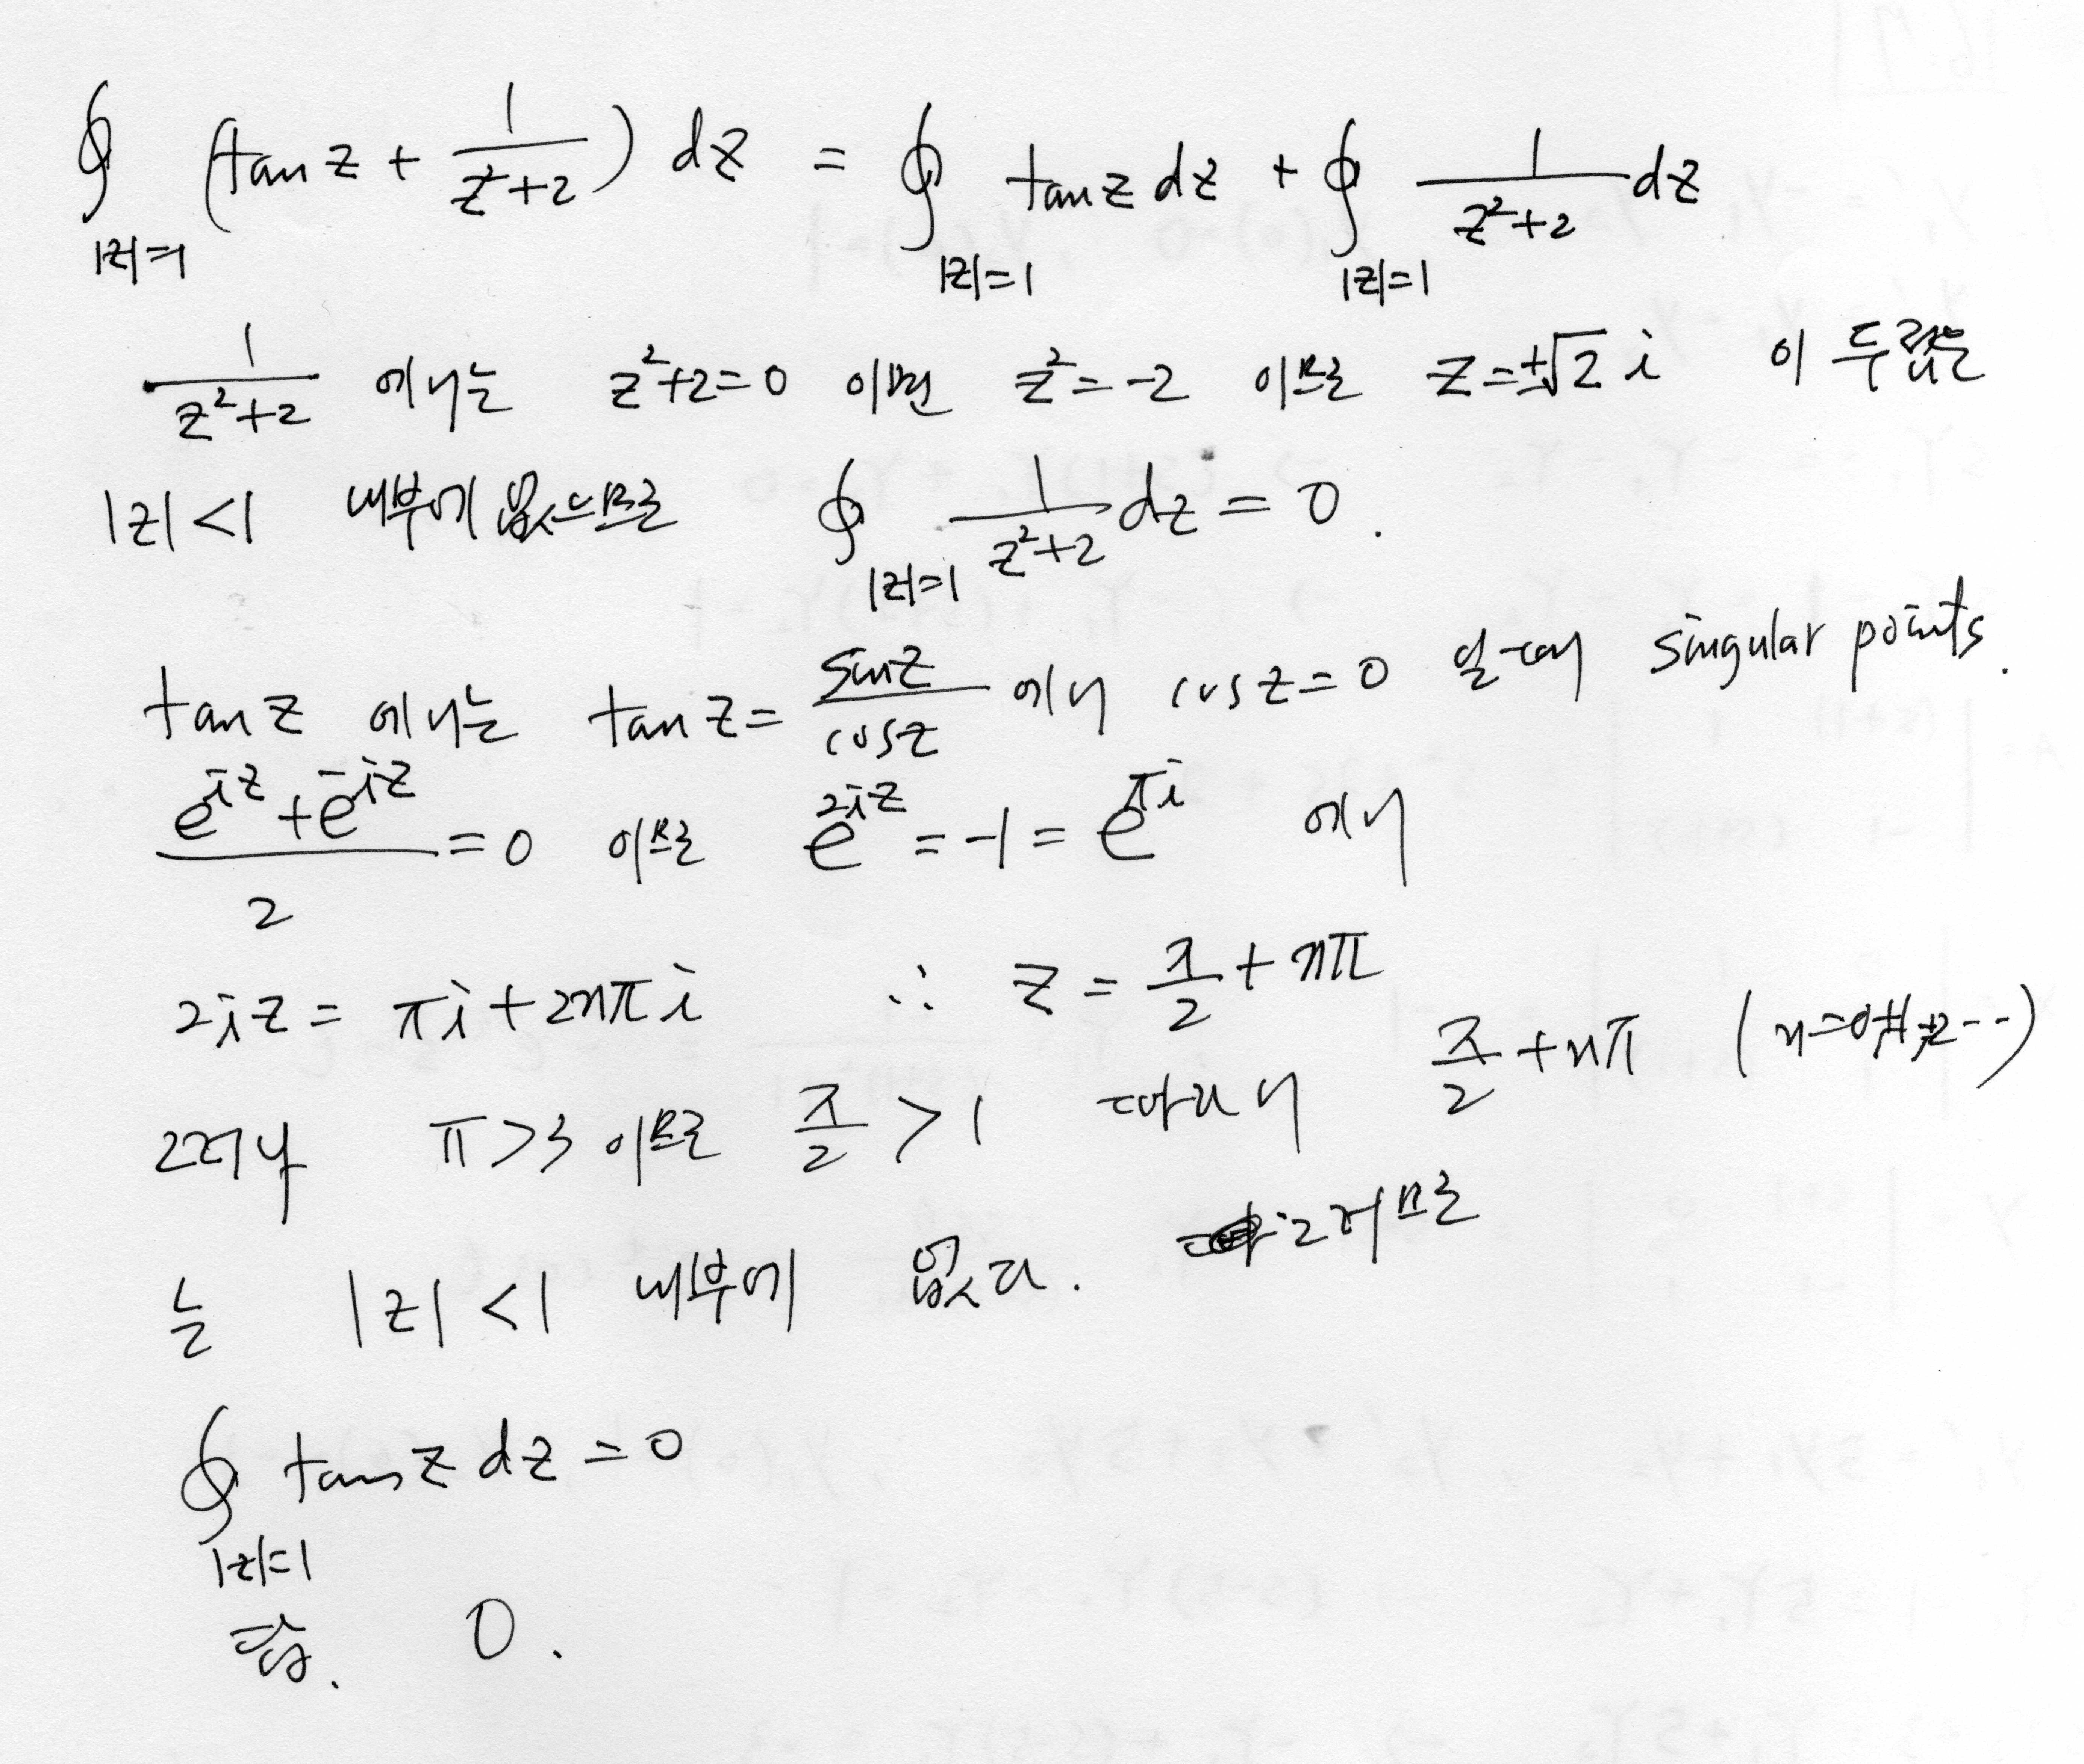 ∮_{|z|=1} (tan z + 1/(z²+2)) dz = ∮_{|z|=1} tan z dz + ∮_{|z|=1} 1/(z²+2) dz
1/(z²+2) 에서는 z²+2=0 이면 z²=-2 이므로 z=±√2 i 이 두 값은
|z|<1 내부에 없으므로 ∮_{|z|=1} 1/(z²+2) dz = 0.
tan z 에서는 tan z = sin z/cos z 에서 cos z = 0 일 때 singular points.
(e^{iz}+e^{-iz})/2 = 0 이므로 e^{2iz} = -1 = e^{πi} 에서
2iz = πi + 2nπi ∴ z = π/2 + nπ
그러나 π>3 이므로 π/2 > 1 따라서 π/2 + nπ (n=0,±1,±2--)
는 |z|<1 내부에 없다. 그러므로
∮_{|z|=1} tan z dz = 0
답. 0.